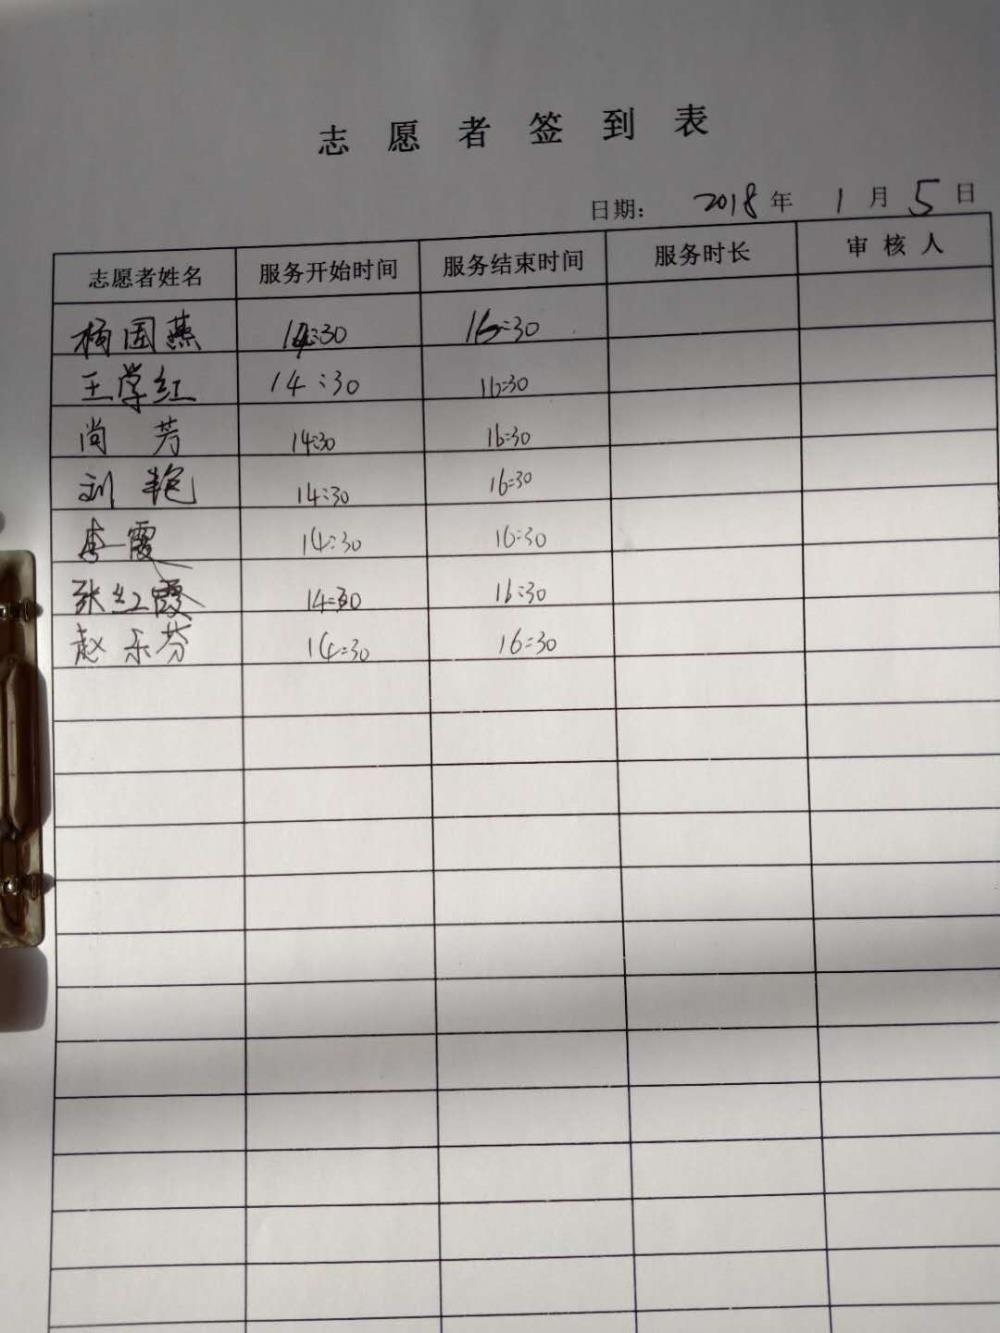 志愿者签到表
日期： 2018年 1月5日
志愿者姓名 服务开始时间 服务结束时间 服务时长 审核人
杨国燕 14:30 16:30
王学红 14:30 16:30
尚芳 14:30 16:30
刘艳 14:30 16:30
李霞 14:30 16:30
张红霞 14:30 16:30
赵乐芬 14:30 16:30